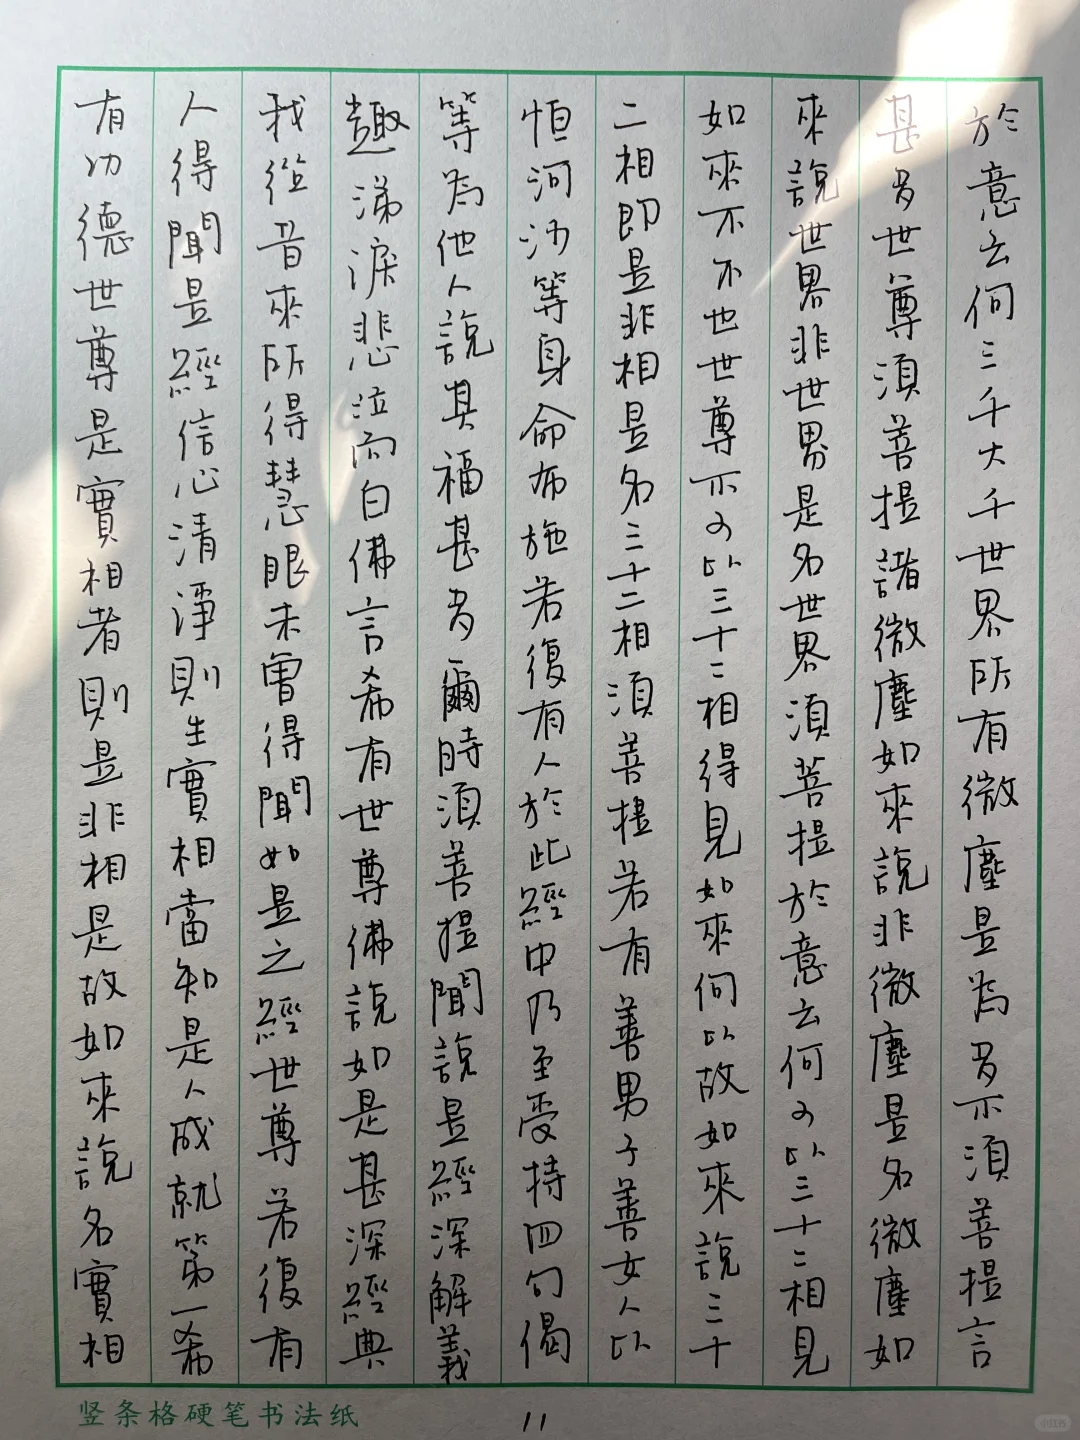 於意云何三千大千世界所有微塵是為多不須菩提言
甚多世尊須菩提諸微塵如來說非微塵是名微塵如
來說世界非世界是名世界須菩提於意云何可以三十二相見
如來不不也世尊不可以三十二相得見如來何以故如來說三十
二相即是非相是名三十二相須菩提若有善男子善女人以
恒河沙等身命布施若復有人於此經中乃至受持四句偈
等為他人說其福甚多爾時須菩提聞說是經深解義
趣涕淚悲泣而白佛言希有世尊佛說如是甚深經典
我從昔來所得慧眼未曾得聞如是之經世尊若復有
人得聞是經信心清淨則生實相當知是人成就第一希
有功德世尊是實相者則是非相是故如來說名實相
竖条格硬笔书法纸
11
小红书